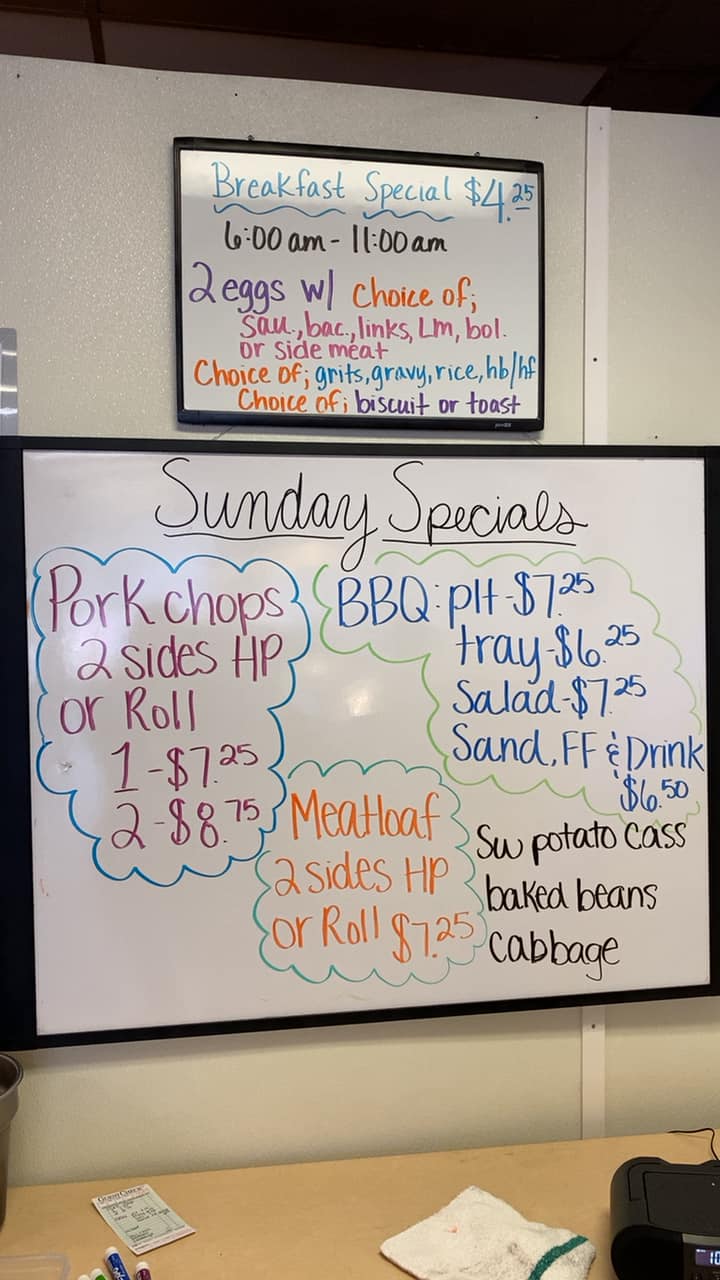 Breakfast Special $4.25
6:00 am - 11:00 am
2 eggs w/ Choice of;
Sau., bac., links, Lm, bol.
or side meat
Choice of; grits, gravy, rice, hb/hf
Choice of; biscuit or toast
Sunday Specials
Pork chops
2 sides HP
or Roll
1-$7.25
2-$8.75
BBQ: plt-$7.25
tray-$6.25
Salad-$7.25
Sand, FF & Drink
$6.50
Meatloaf
2 sides HP
or Roll $7.25
Sw potato cass
baked beans
cabbage